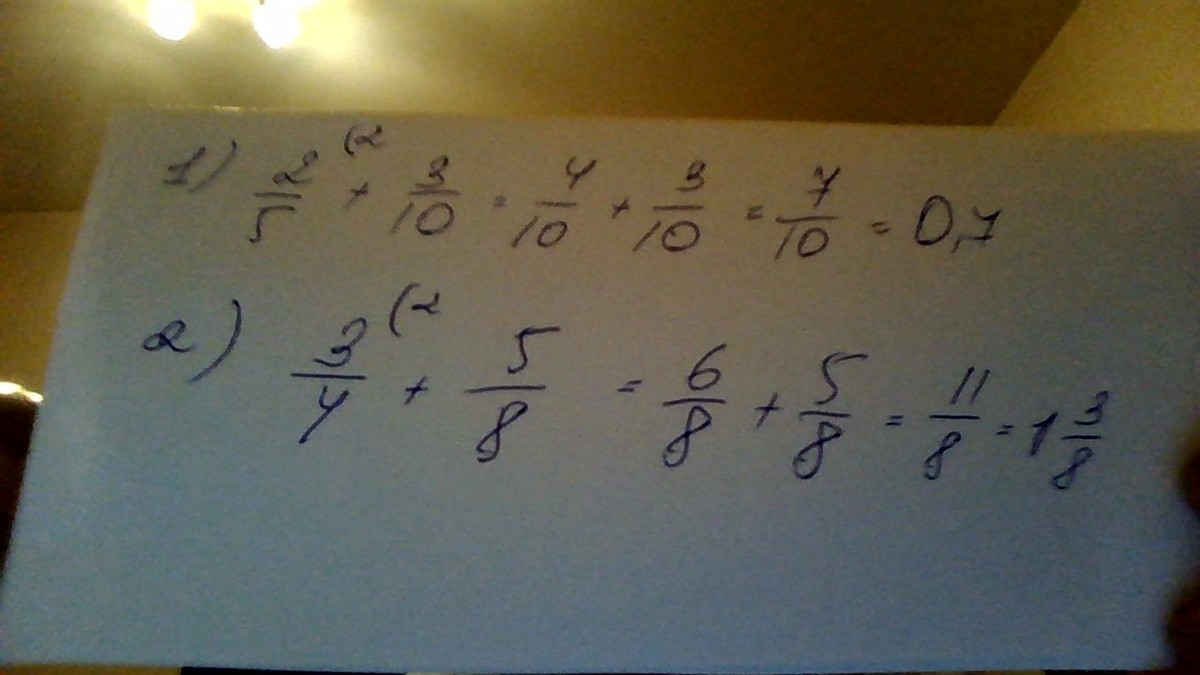 1) 2/5 (2 + 3/10 = 4/10 + 3/10 = 7/10 = 0,7
2) 3/4 (2 + 5/8 = 6/8 + 5/8 = 11/8 = 1 3/8